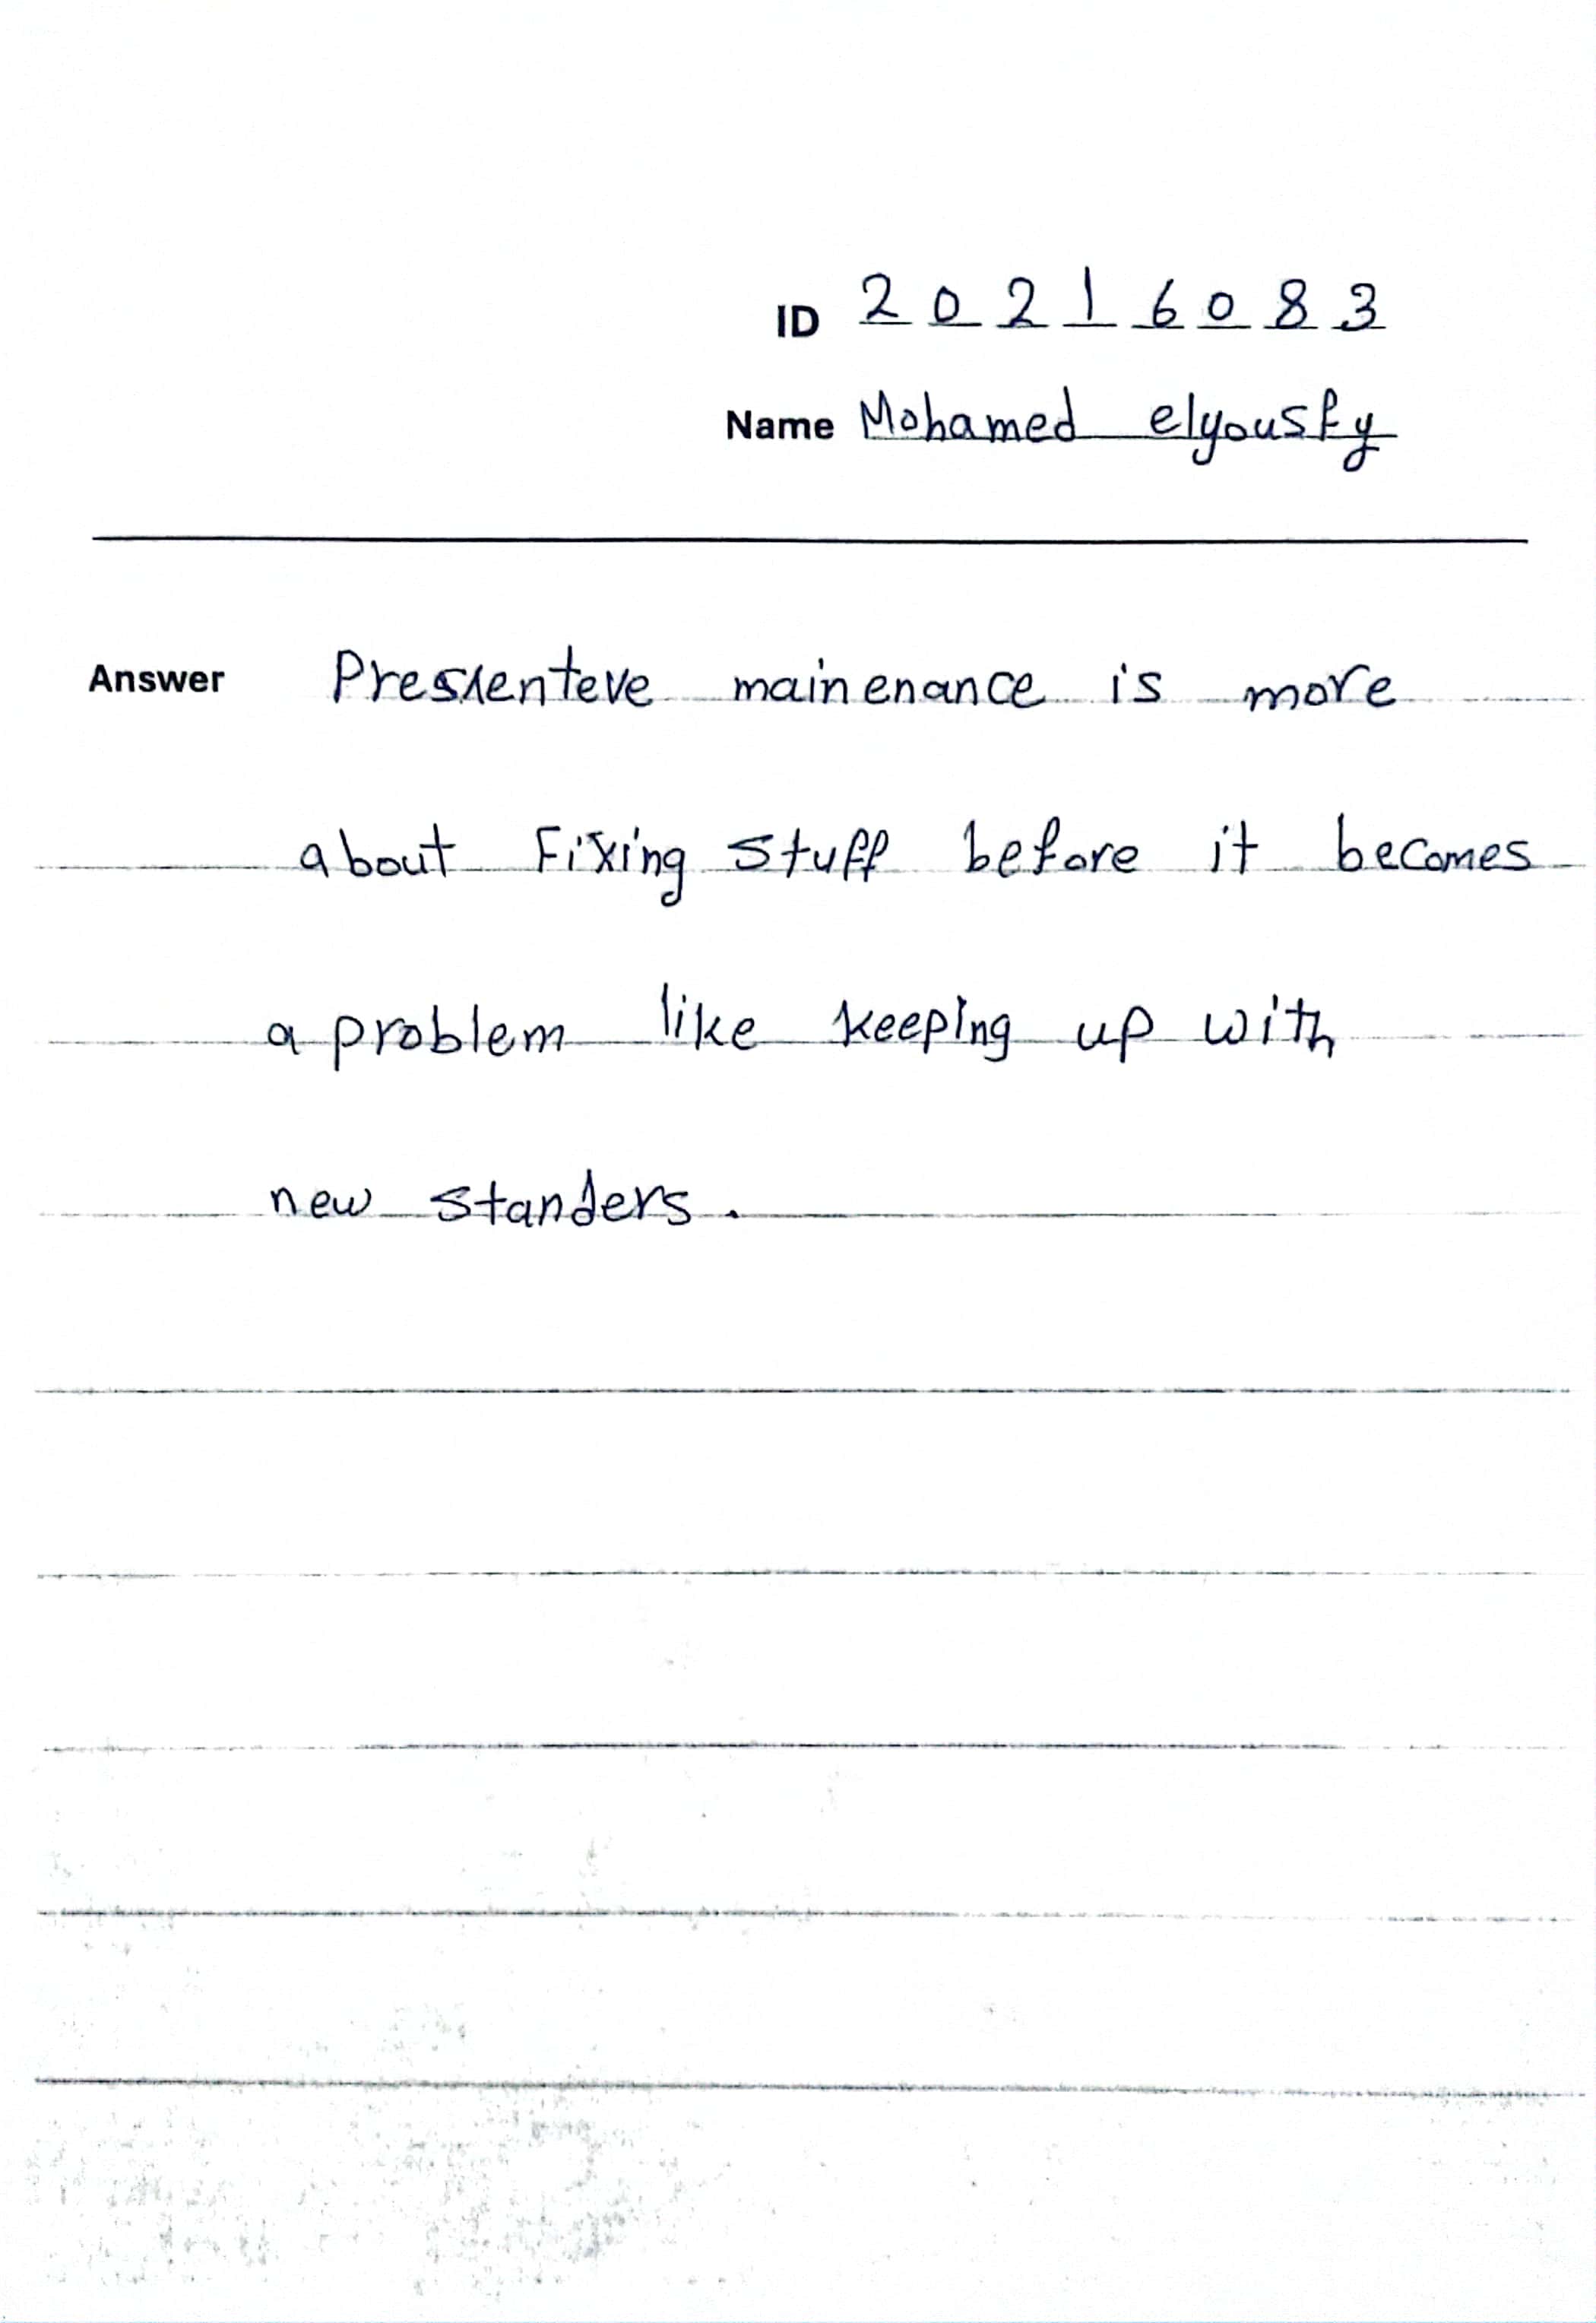 ID 20216083
Name Mohamed elyousfy
Answer Presienteve mainenance is more
about Fixing stuff before it becomes
a problem like keeping up with
new standers.